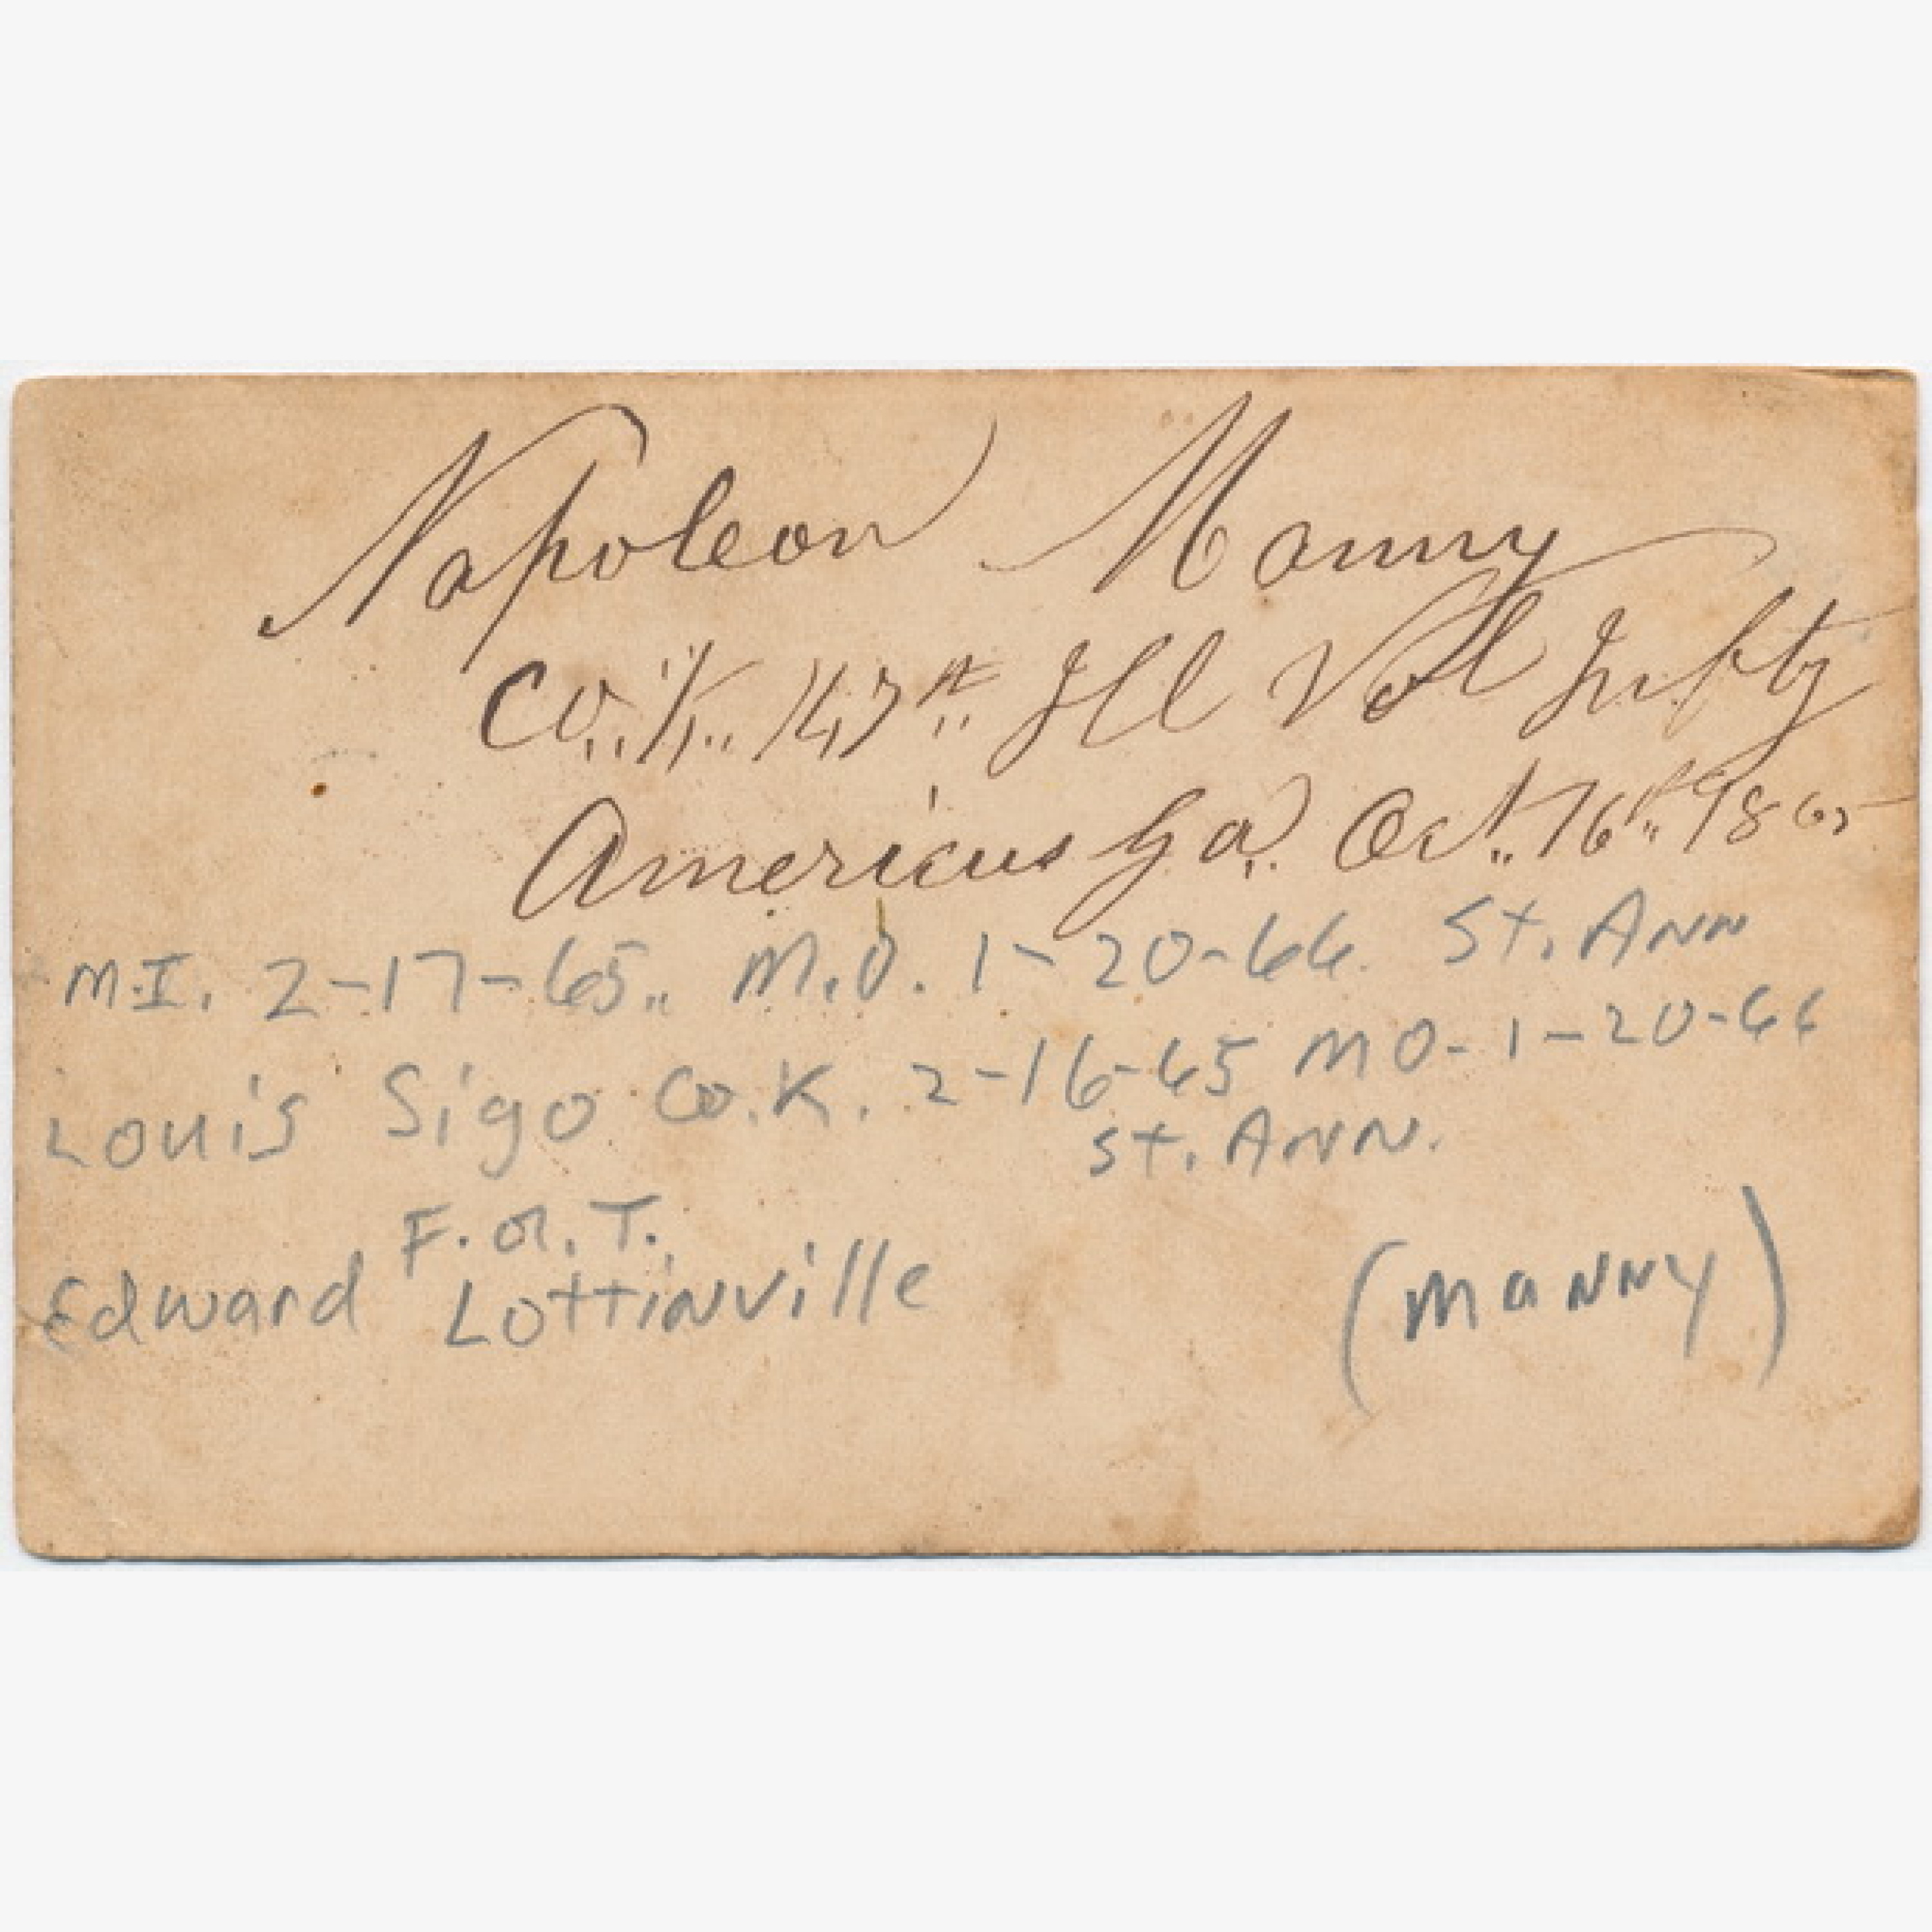 Napoleon Manny
Co. "K" 147th Ill Vol Infty
Americus Ga. Oct. 16th 1865
M.I. 2-17-65.. M.O. 1-20-66 St. Ann
Louis Sigo Co. K. 2-16-65 MO-1-20-66
St. ANN.
F. or. T.
Edward Lottinville
(Manny)